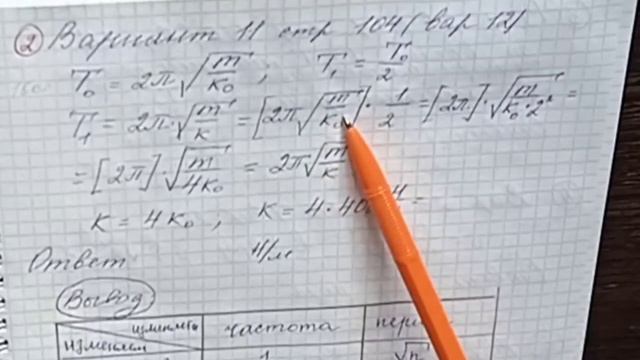 ② Вариант 11 стр 104 (вар 12)
T₀ = 2π √(m/k₀) ; T₁ = T₀/2
T₁ = 2π · √(m/k) = [2π √(m/k₀)] · 1/2 = [2π] · √(m/(k₀ · 2²)) =
= [2π] · √(m/4k₀) = 2π √(m/k)
k = 4k₀ , k = 4 · 40 =
Ответ Н/м
Вывод
изменяем частота
изменяем